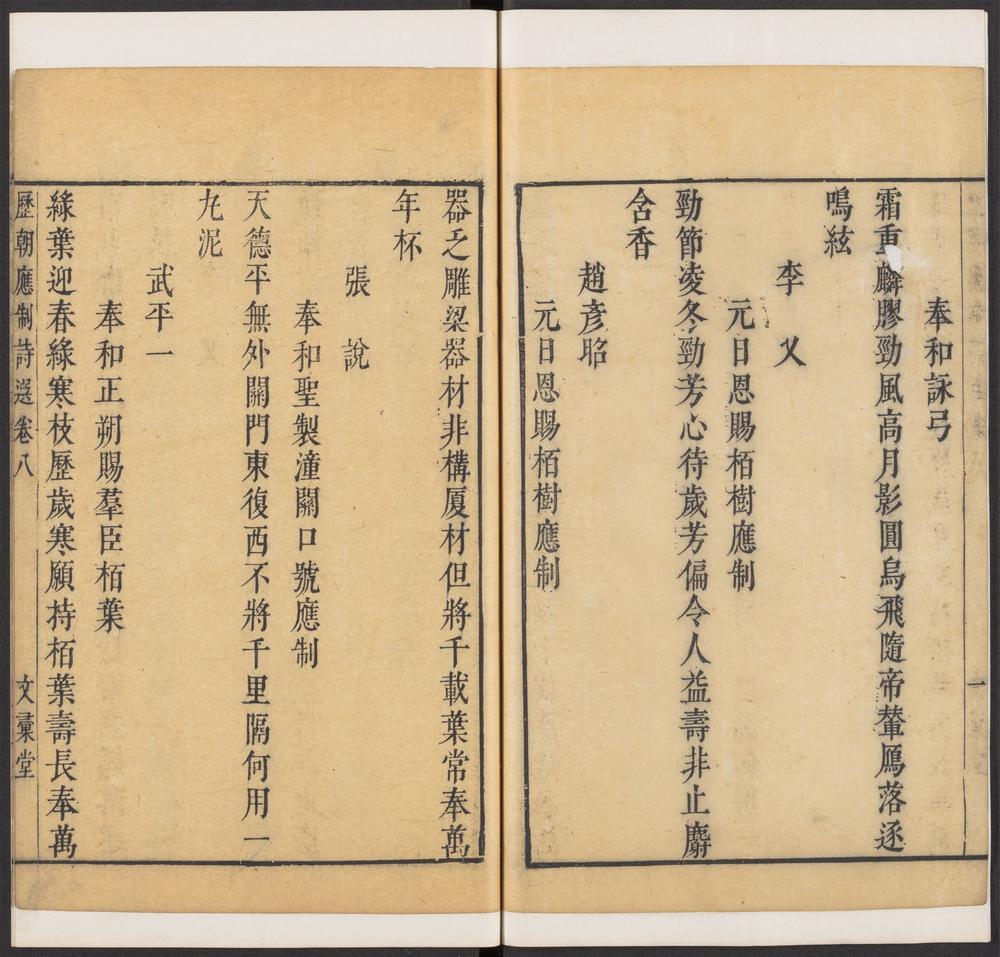 奉和詠弓
霜重麟膠勁風高月影圓烏飛隨帝輦鴈落逐
鳴絃
李乂
元日恩賜栢樹應制
勁節凌冬勁芳心待歲芳偏令人益壽非止麝
含香
趙彥昭
元日恩賜栢樹應制
器乏雕梁器材非構厦材但將千載葉常奉萬
年杯
張說
奉和聖製潼關口號應制
天德平無外關門東復西不將千里隔何用一
九泥
武平一
奉和正朔賜羣臣栢葉
綠葉迎春綠寒枝歷歲寒願持栢葉壽長奉萬
歷朝應制詩選卷八 文彙堂